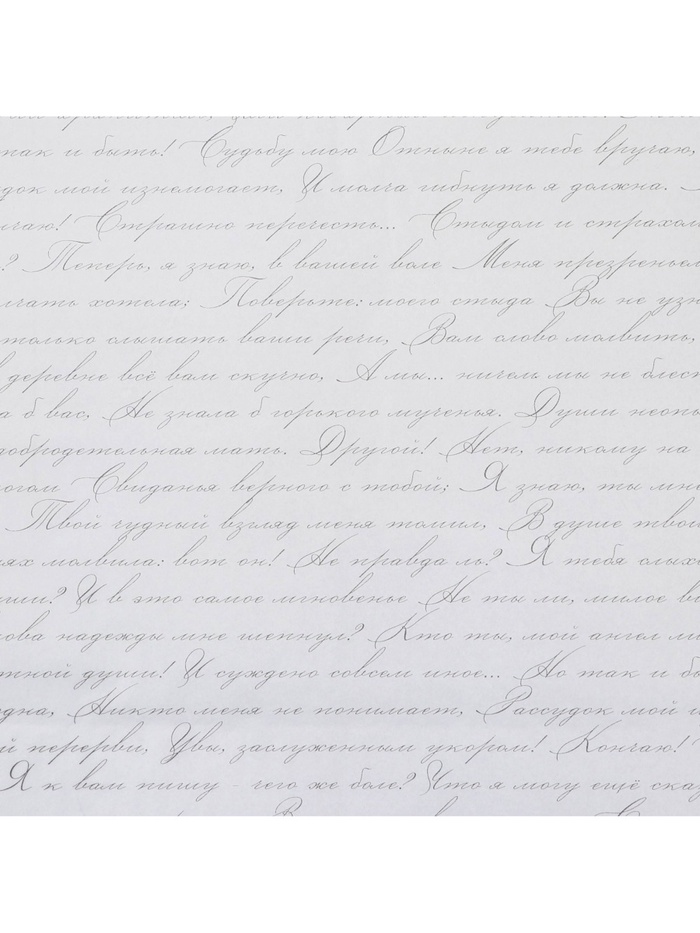 так и быть! Судьбу мою Отныне я тебе вручаю,
док мой изнемогает, И молча гибнуть я должна.
чаю! Страшно перечесть... Стыдом и страхом
? Теперь, я знаю, в вашей воле Меня презреньем
лчать хотела; Поверьте: моего стыда Вы не узн
только слышать ваши речи, Вам слово молвить,
в деревне всё вам скучно, А мы... ничем мы не блест
а б вас, Не знала б горького мученья. Души неопы
добродетельная мать. Другой! Нет, никому на
огом Свиданья верного с тобой; Я знаю, ты мне
Твой чудный взгляд меня томил, В душе твой
ях молвила: вот он! Не правда ль? Я тебя слыха
ши? И в это самое мгновенье Не ты ли, милое ви
ова надежды мне шепнул? Кто ты, мой ангел ли
тной души! И суждено совсем иное... Но так и бы
дна, Никто меня не понимает, Рассудок мой и
й перерви, Увы, заслуженным укором! Кончаю!
Я к вам пишу - чего же боле? Что я могу ещё сказ